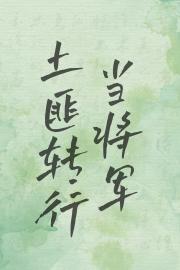 土匪转行
当将军